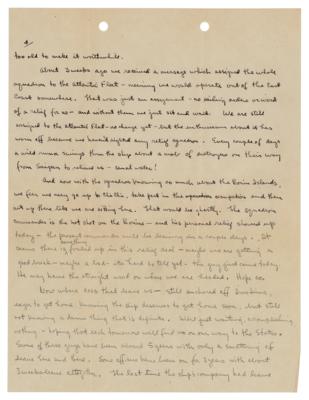 4
too old to make it worthwhile.
About 2 weeks ago we received a message which assigned the whole
squadron to the Atlantic Fleet - meaning we would operate out of the East
Coast somewhere. That was just an assignment - no sailing orders or word
of a relief for us - and without them we just sit and wait. We are still
assigned to the Atlantic Fleet - no change yet - but the enthusiasm about it has
worn off because we haven't sighted any relief squadron. Every couple of days
a wild rumor swings thru the ship about a mob of destroyers on their way
from Saipan to relieve us - small notes!
And now with the squadron knowing so much about the Bonin Islands,
we fear we may go up to the this, take part in the operation occupation and then
sit up there like we are sitting here. That would be ghastly. The squadron
commander is the hot shot on the Bonins - and his personal relief showed up
today - the present commander will be leaving in a couple days. It
seems there is something fouled up in this relief deal - maybe we are getting a
good break - maybe a bad - it's hard to tell yet. The guy just came today.
He may have the straight word on where we are headed. Hope so.
Now where does that leave us - still anchored off
eager to get home, knowing the ship deserves to get home soon, but still
not knowing a damn thing that is definite. We're just waiting, accomplishing
nothing - hoping that each tomorrow will find us on our way to the States.
Some of these guys have been aboard 2 years with only a smattering of
leave here and there. Some officers have been on for 2 years with about
2 weeks leave altogether. The last time the ship's company had leave